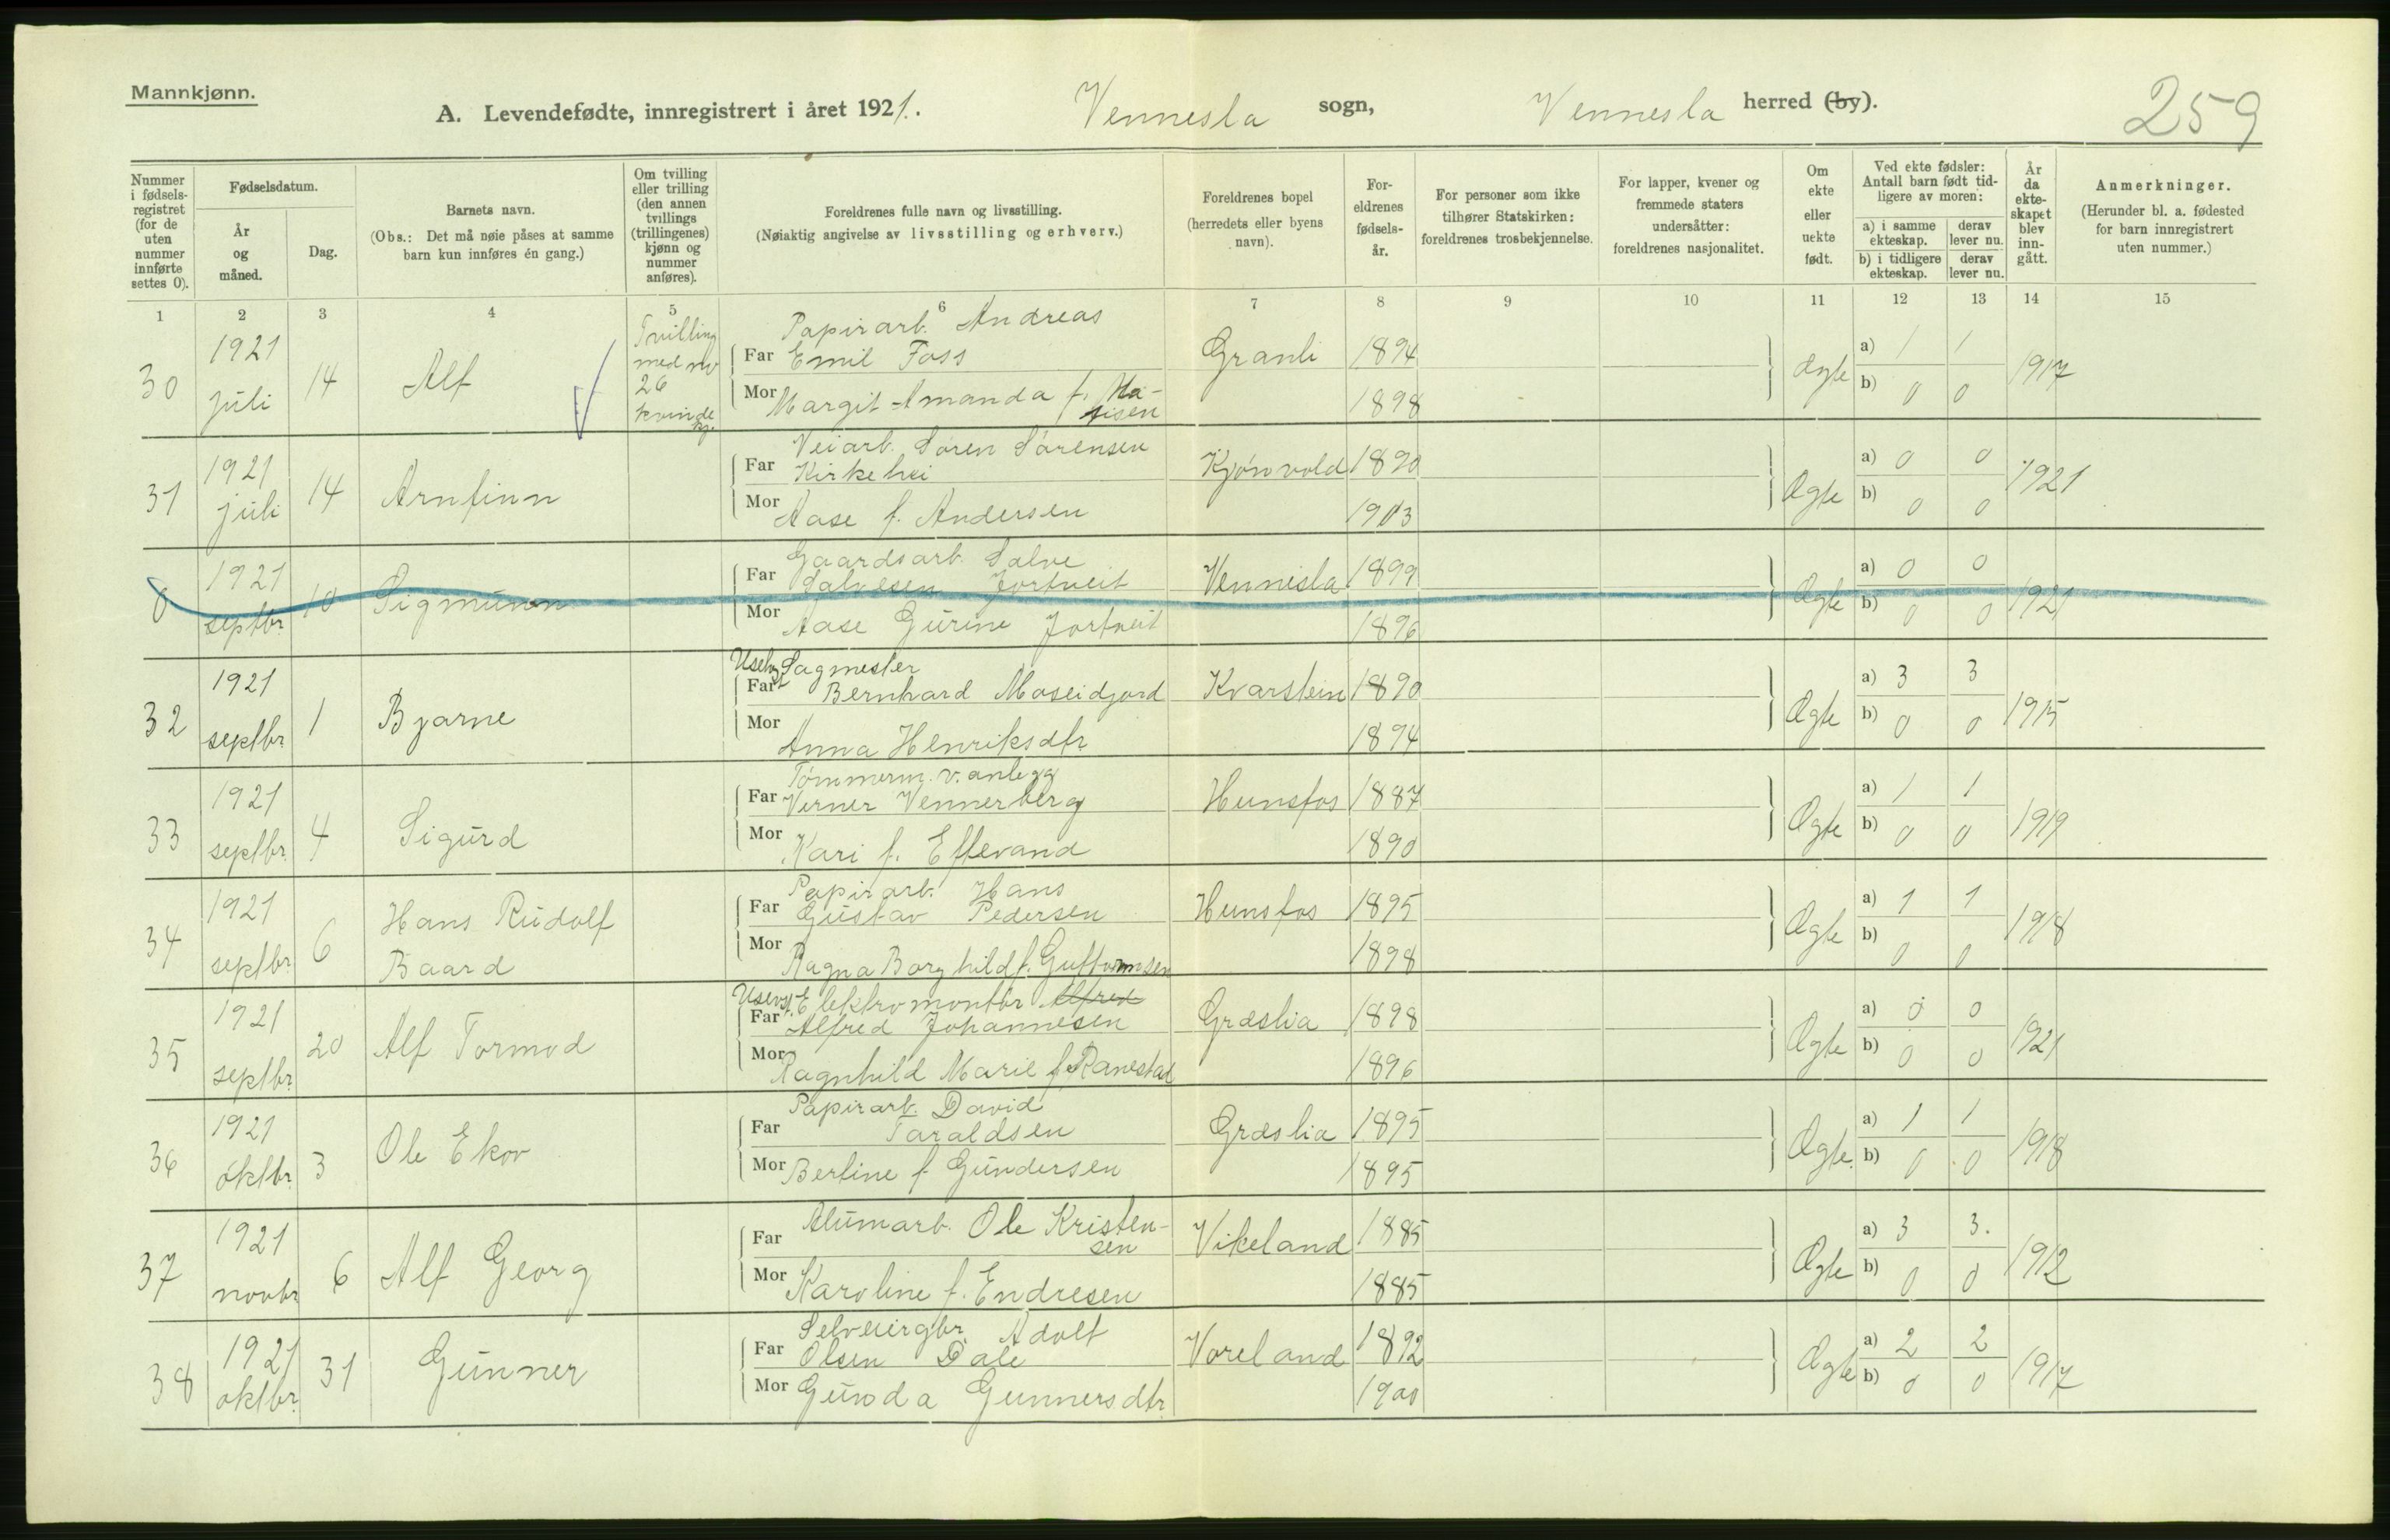 Mannkjønn.
A. Levendefødte, innregistrert i året 1921. Vennesla sogn, Vennesla herred (by). 259
Nummer i fødsels-registret (for de uten nummer innførte settes 0).
Fødselsdatum.
År og måned.
Dag.
Barnets navn.
(Obs.: Det må nøie påses at samme barn kun innføres én gang.)
Om tvilling eller trilling (den annen tvillings (trillingenes) kjønn og nummer anføres).
Foreldrenes fulle navn og livsstilling.
(Nøiaktig angivelse av livsstilling og erhverv.)
Foreldrenes bopel (herredets eller byens navn).
For-eldrenes fødsels-år.
For personer som ikke tilhører Statskirken: foreldrenes trosbekjennelse.
For lapper, kvener og fremmede staters undersåtter: foreldrenes nasjonalitet.
Om ekte eller uekte født.
Ved ekte fødsler: Antall barn født tid-ligere av moren:
a) i samme ekteskap. derav lever nu.
b) i tidligere ekteskap. derav lever nu.
År da ekte-skapet blev inn-gått.
Anmerkninger.
(Herunder bl. a. fødested for barn innregistrert uten nummer.)
1 2 3 4 5 6 7 8 9 10 11 12 13 14 15
30 1921 juli 14 Alf Tvilling med no 26 kvindekj.
Papirarb. Andreas
Far Emil Foss Granli 1894 ægte a) 1 1 1917
Mor Margit Amanda f. 1898 b) 0 0
31 1921 juli 14 Arnfinn
Veiarb. Søren Sørensen
Far Kirkehei Kjønvold 1890 Ægte a) 0 0 1921
Mor Aase f. Andersen 1903 b) 0 0
0 1921 septbr. 10 Sigmunn
Gaardsarb. Salve
Far Salvesen Jortveit Vennesla 1899 Ægte a) 0 0 1921
Mor Aase Gurine Jortveit 1896 b) 0 0
32 1921 septbr. 1 Bjarne
Uselvst Sagmester
Far Bernhard Moseidjord Kvarstein 1890 Ægte a) 3 3 1915
Mor Anna Henriksdtr 1894 b) 0 0
33 1921 septbr. 4 Sigurd
Tømmerm. v. anlegg
Far Verner Vennerberg Hunsfos 1887 Ægte a) 1 1 1919
Mor Kari f. Eftevand 1890 b) 0 0
34 1921 septbr. 6 Hans Rudolf Baard
Papirarb. Hans
Far Gustav Pedersen Hunsfos 1895 Ægte a) 1 1 1918
Mor Ragna Borghild f. Guttormsen 1898 b) 0 0
35 1921 septbr. 20 Alf Tormod
Uselvst. Elektromontør Alfred
Far Alfred Johannesen Græslia 1898 Ægte a) 0 0 1921
Mor Ragnhild Marie f. Ranestad 1896 b) 0 0
36 1921 oktbr. 3 Ole Ekov
Papirarb. David
Far Taraldsen Græslia 1895 Ægte. a) 1 1 1918
Mor Bertine f. Gundersen 1895 b) 0 0
37 1921 novbr. 6 Alf Georg
Alumarb. Ole Kristen-
Far sen Vikeland 1885 Ægte a) 3 3. 1912
Mor Karoline f. Endresen 1885 b) 0 0
38 1921 oktbr. 31 Gunner
Selveiergbr. Adolf
Far Olsen Dale Voreland 1892 Ægte a) 2 2 1917
Mor Gunda Gunnersdtr. 1900 b) 0 0